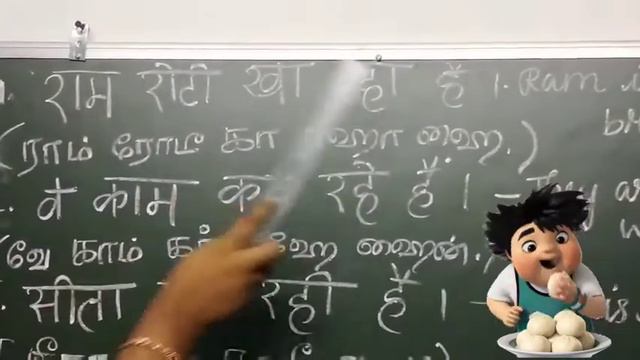 राम रोटी खा हा है । Ram
(ராம் ரோடீ கா ஹா ஹை.)
वे काम क रहे हैं । - They
(வே காம் கர் ஹே ஹைன்.)
सीता रही है ।